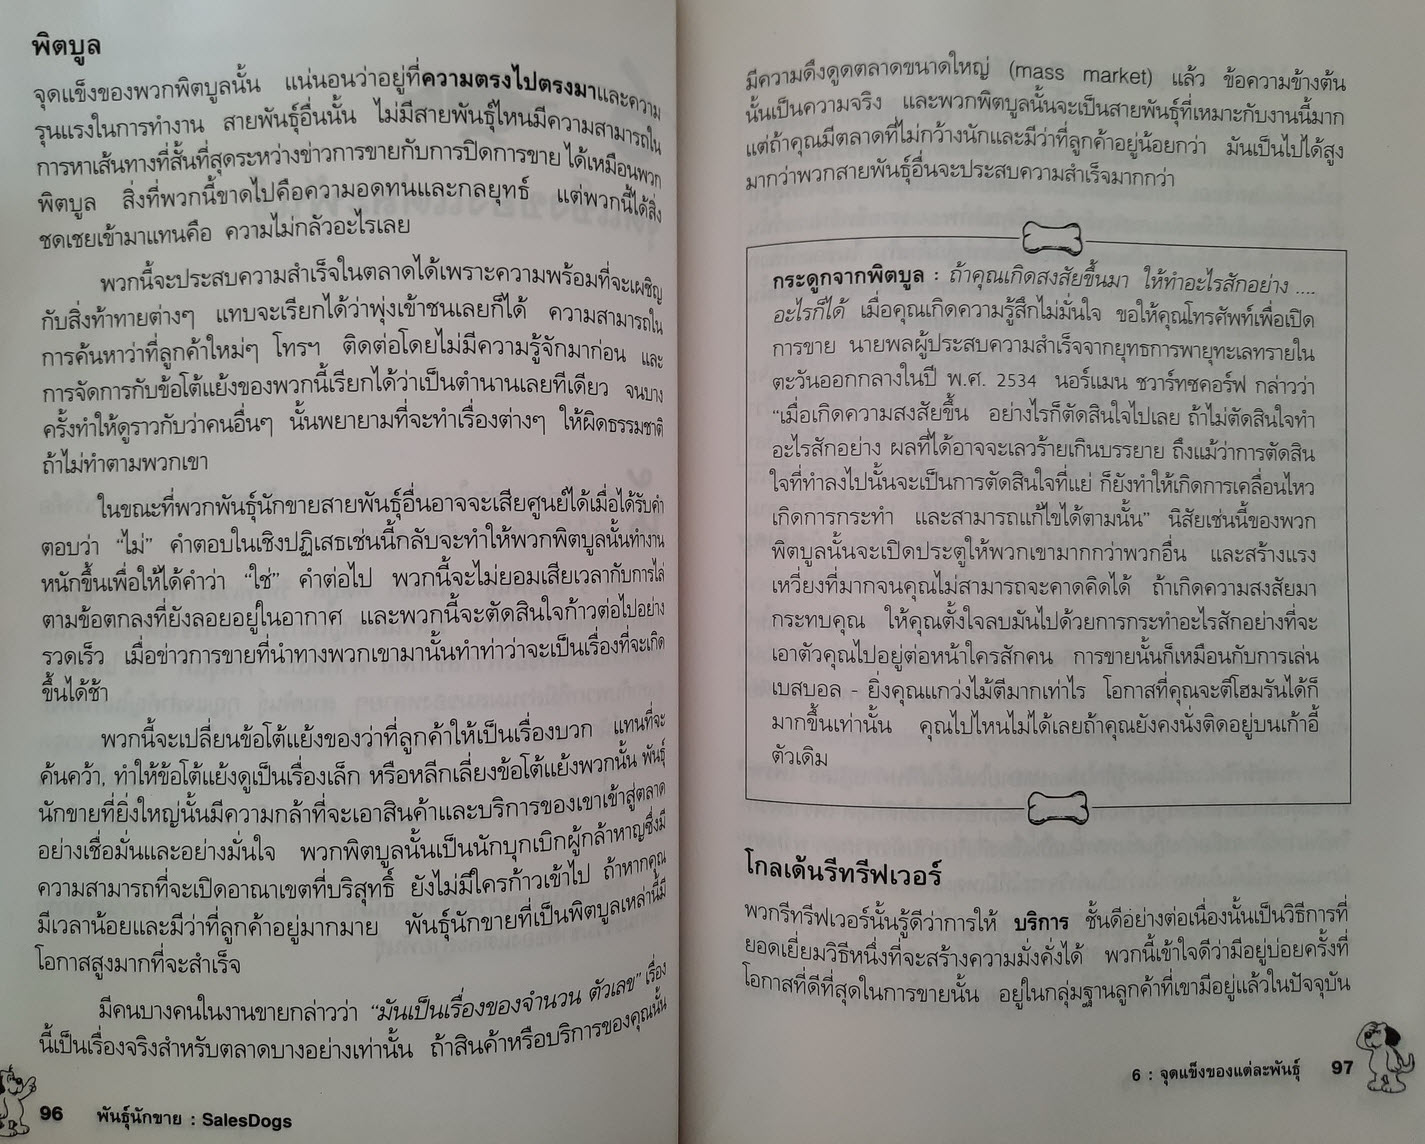 พิตบูล
จุดแข็งของพวกพิตบูลนั้น แน่นอนว่าอยู่ที่ความตรงไปตรงมาและความ
รุนแรงในการทำงาน สายพันธุ์อื่นนั้น ไม่มีสายพันธุ์ไหนมีความสามารถใน
การหาเส้นทางที่สั้นที่สุดระหว่างข่าวการขายกับการปิดการขาย ได้เหมือนพวก
พิตบูล สิ่งที่พวกนี้ขาดไปคือความอดทนและกลยุทธ์ แต่พวกนี้ได้สิ่ง
ชดเชยเข้ามาแทนคือ ความไม่กลัวอะไรเลย
พวกนี้จะประสบความสำเร็จในตลาดได้เพราะความพร้อมที่จะเผชิญ
กับสิ่งท้าทายต่างๆ แทบจะเรียกได้ว่าพุ่งเข้าชนเลยก็ได้ ความสามารถใน
การค้นหาว่าที่ลูกค้าใหม่ๆ โทรฯ ติดต่อโดยไม่มีความรู้จักมาก่อน และ
การจัดการกับข้อโต้แย้งของพวกนี้เรียกได้ว่าเป็นตำนานเลยทีเดียว จนบาง
ครั้งทำให้ดูราวกับว่าคนอื่นๆ นั้นพยายามที่จะทำเรื่องต่างๆ ให้ผิดธรรมชาติ
ถ้าไม่ทำตามพวกเขา
ในขณะที่พวกพันธุ์นักขายสายพันธุ์อื่นอาจจะเสียศูนย์ได้เมื่อได้รับคำ
ตอบว่า “ไม่” คำตอบในเชิงปฏิเสธเช่นนี้กลับจะทำให้พวกพิตบูลนั้นทำงาน
หนักขึ้นเพื่อให้ได้คำว่า “ใช่” คำต่อไป พวกนี้จะไม่ยอมเสียเวลากับการไล่
ตามข้อตกลงที่ยังลอยอยู่ในอากาศ และพวกนี้จะตัดสินใจก้าวต่อไปอย่าง
รวดเร็ว เมื่อข่าวการขายที่นำทางพวกเขามานั้นทำท่าว่าจะเป็นเรื่องที่จะเกิด
ขึ้นได้ช้า
พวกนี้จะเปลี่ยนข้อโต้แย้งของว่าที่ลูกค้าให้เป็นเรื่องบวก แทนที่จะ
ค้นคว้า, ทำให้ข้อโต้แย้งดูเป็นเรื่องเล็ก หรือหลีกเลี่ยงข้อโต้แย้งพวกนั้น พันธุ์
นักขายที่ยิ่งใหญ่นั้นมีความกล้าที่จะเอาสินค้าและบริการของเขาเข้าสู่ตลาด
อย่างเชื่อมั่นและอย่างมั่นใจ พวกพิตบูลนั้นเป็นนักบุกเบิกผู้กล้าหาญซึ่งมี
ความสามารถที่จะเปิดอาณาเขตที่บริสุทธิ์ ยังไม่มีใครก้าวเข้าไป ถ้าหากคุณ
มีเวลาน้อยและมีว่าที่ลูกค้าอยู่มากมาย พันธุ์นักขายที่เป็นพิตบูลเหล่านี้มี
โอกาสสูงมากที่จะสำเร็จ
มีคนบางคนในงานขายกล่าวว่า “มันเป็นเรื่องของจำนวน ตัวเลข” เรื่อง
นี้เป็นเรื่องจริงสำหรับตลาดบางอย่างเท่านั้น ถ้าสินค้าหรือบริการของคุณนั้น
96 พันธุ์นักขาย : SalesDogs
มีความดึงดูดตลาดขนาดใหญ่ (mass market) แล้ว ข้อความข้างต้น
นั้นเป็นความจริง และพวกพิตบูลนั้นจะเป็นสายพันธุ์ที่เหมาะกับงานนี้มาก
แต่ถ้าคุณมีตลาดที่ไม่กว้างนักและมีว่าที่ลูกค้าอยู่น้อยกว่า มันเป็นไปได้สูง
มากว่าพวกสายพันธุ์อื่นจะประสบความสำเร็จมากกว่า
กระดูกจากพิตบูล : ถ้าคุณเกิดสงสัยขึ้นมา ให้ทำอะไรสักอย่าง ....
อะไรก็ได้ เมื่อคุณเกิดความรู้สึกไม่มั่นใจ ขอให้คุณโทรศัพท์เพื่อเปิด
การขาย นายพลผู้ประสบความสำเร็จจากยุทธการพายุทะเลทรายใน
ตะวันออกกลางในปี พ.ศ. 2534 นอร์แมน ชวาร์ทซคอร์ฟ กล่าวว่า
“เมื่อเกิดความสงสัยขึ้น อย่างไรก็ตัดสินใจไปเลย ถ้าไม่ตัดสินใจทำ
อะไรสักอย่าง ผลที่ได้อาจจะเลวร้ายเกินบรรยาย ถึงแม้ว่าการตัดสิน
ใจที่ทำลงไปนั้นจะเป็นการตัดสินใจที่แย่ ก็ยังทำให้เกิดการเคลื่อนไหว
เกิดการกระทำ และสามารถแก้ไขได้ตามนั้น” นิสัยเช่นนี้ของพวก
พิตบูลนั้นจะเปิดประตูให้พวกเขามากกว่าพวกอื่น และสร้างแรง
เหวี่ยงที่มากจนคุณไม่สามารถจะคาดคิดได้ ถ้าเกิดความสงสัยมา
กระทบคุณ ให้คุณตั้งใจลบมันไปด้วยการกระทำอะไรสักอย่างที่จะ
เอาตัวคุณไปอยู่ต่อหน้าใครสักคน การขายนั้นก็เหมือนกับการเล่น
เบสบอล - ยิ่งคุณแกว่งไม้ตีมากเท่าไร โอกาสที่คุณจะตีโฮมรันได้ก็
มากขึ้นเท่านั้น คุณไปไหนไม่ได้เลยถ้าคุณยังคงนั่งติดอยู่บนเก้าอี้
ตัวเดิม
โกลเด้นรีทรีฟเวอร์
พวกรีทรีฟเวอร์นั้นรู้ดีว่าการให้ บริการ ชั้นดีอย่างต่อเนื่องนั้นเป็นวิธีการที่
ยอดเยี่ยมวิธีหนึ่งที่จะสร้างความมั่งคั่งได้ พวกนี้เข้าใจดีว่ามีอยู่บ่อยครั้งที่
โอกาสที่ดีที่สุดในการขายนั้น อยู่ในกลุ่มฐานลูกค้าที่เขามีอยู่แล้วในปัจจุบัน
6 : จุดแข็งของแต่ละพันธุ์ 97